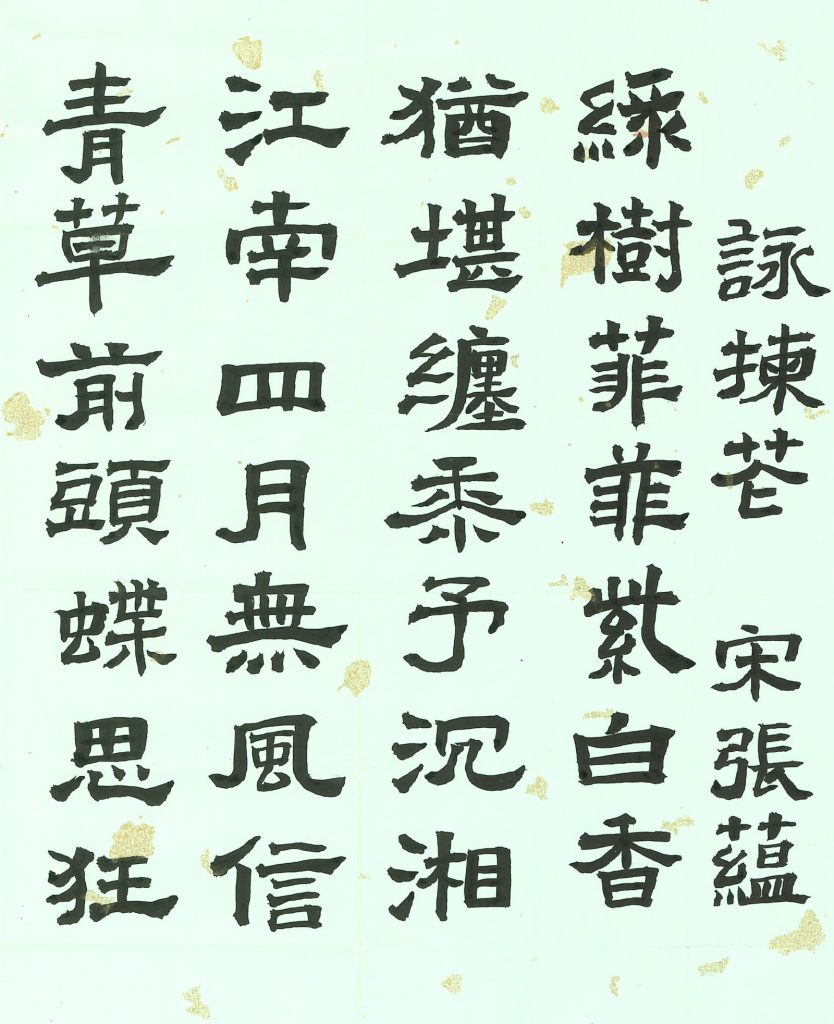 詠揀花 宋 張蘊
綠樹菲菲紫白香
猶堪纏黍予沉湘
江南四月無風信
青草前頭蝶思狂